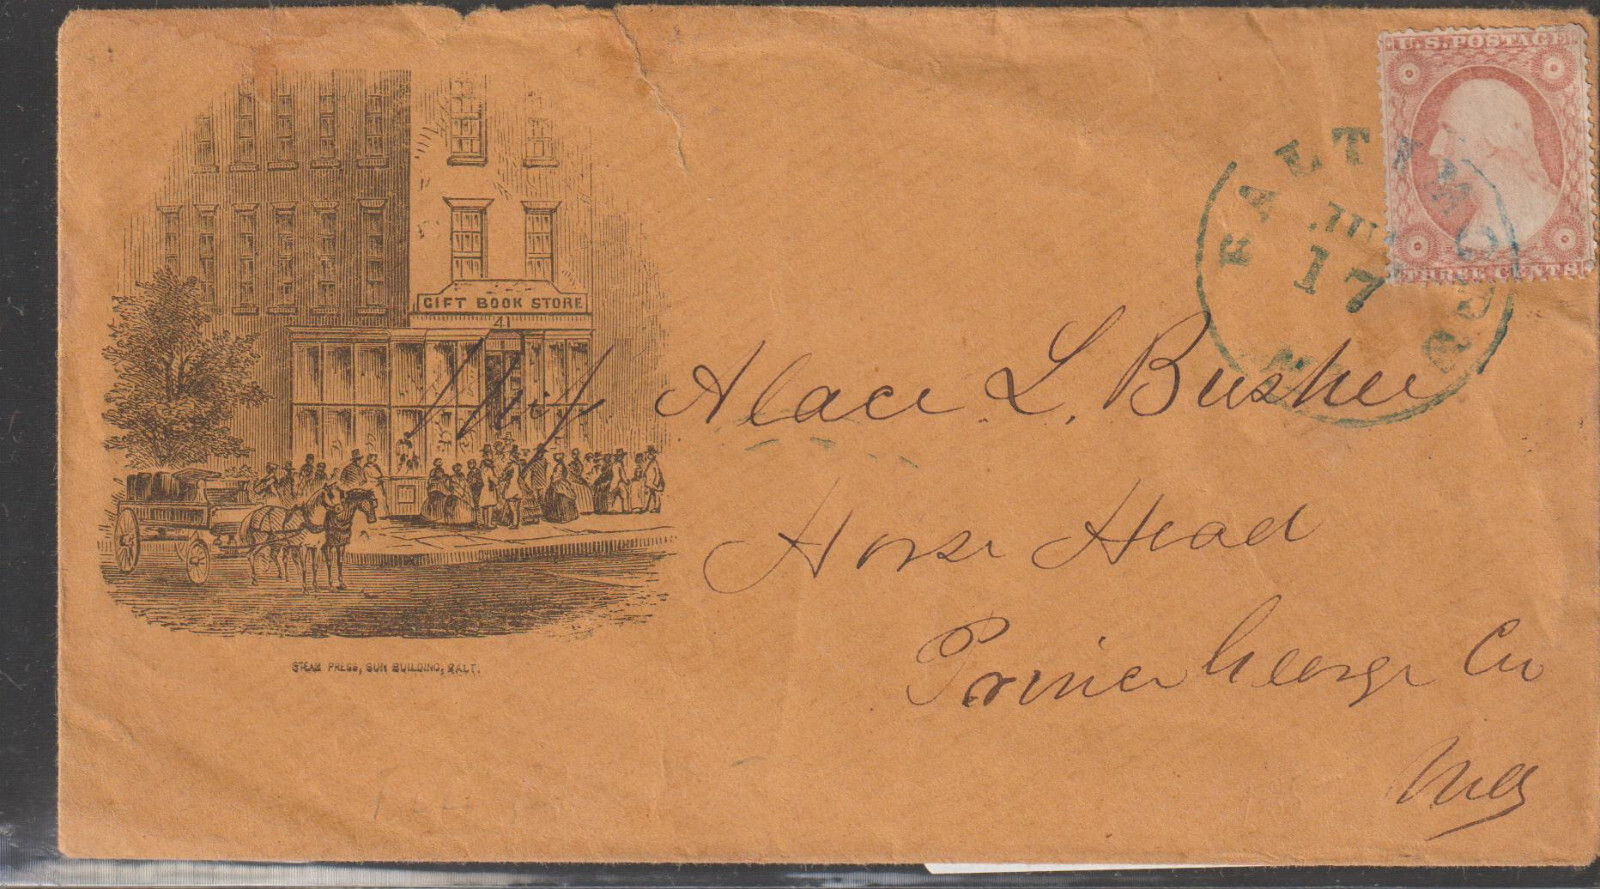 U.S. POSTAGE
THREE CENTS
BALTIMORE
17
Md.
GIFT BOOK STORE
41
STEAM PRESS, SUN BUILDING, BALT.
Miss Alace L. Bushee
Horse Head
Prince George Co
Md